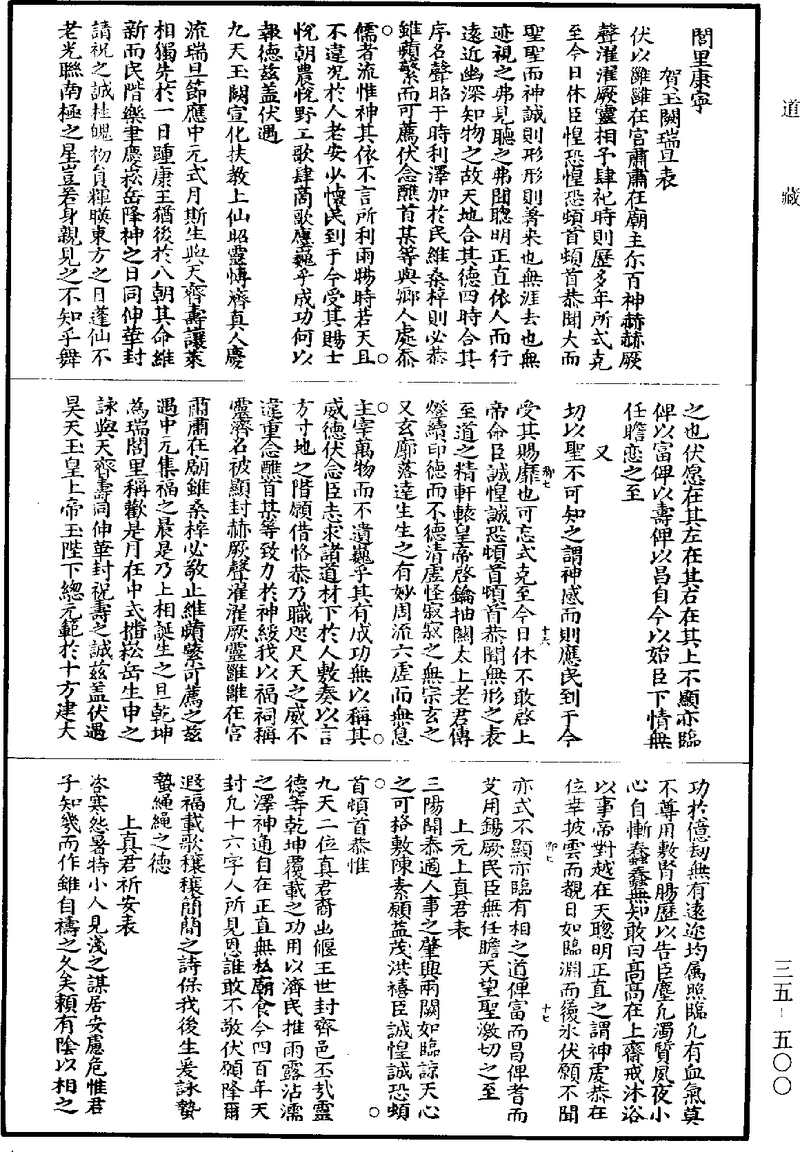 道藏
閤里康寧
賀玉闕瑞旦表
伏以雝雝在宮肅肅在廟主尔百神赫赫厥
聲濯濯厥靈相予肆祀時則歷多年所式克
至今日休臣惶恐惶恐頓首頓首恭聞大而
聖聖而神誠則形形則著来也無涯去也無
迹視之弗見聽之弗聞聦明正直依人而行
遠近幽深知物之故天地合其德四時合其
序名聲昭于時利澤加於民維桑梓則必恭
雖蘋蘩而可薦伏念醮首某等與鄉人處忝
儒者流惟神其依不言所利雨暘時若天且
不違况於人老安少懷民到于今受其賜士
悅朝農悅野工歌肆蒿歌廛巍乎成功何以
報德兹盖伏遇
九天玉闕宣化扶教上仙昭靈博濟真人慶
流瑞旦節應中元式月斯生與天齊壽讓萊
相獨先於一日踵康王猶後於八朝其命維
新而民皆樂聿慶崧岳降神之日同伸華封
請祝之誠桂魄初負輝暎東方之日蓬仙不
老光聯南極之星豈若身親見之不知乎舞
之也伏愿在其左在其右在其上不顯亦臨
俾以富俾以壽俾以昌自今以始臣下情無
任瞻恋之至
又
切以聖不可知之謂神感而則應民到于今
受其賜靡也可忘式克至今日休不敢啓上
帝命臣誠惶誠恐頓首頓首恭聞無形之表
至道之精軒轅皇帝啓鑰抽關太上老君傳
燈續印德而不德清虛怪寂寂之無宗玄之
又玄廓落達生生之有妙周流六虛而無息
主宰萬物而不遺巍乎其有成功無以稱其
威德伏念臣志求諸道材下於人敷奏以言
方寸地之階願借恪恭乃職咫尺天之威不
違重念醮首某等致力於神綏我以福祠稱
靈濟名被顯封赫厥聲濯濯厥靈雝雝在宮
肅肅在廟雖桑梓必敬止維蘋蘩可薦之兹
遇中元集福之晨是乃上相誕生之旦乾坤
為瑞閤里稱歡是月在中式播崧岳生申之
詠與天齊壽同伸華封祝壽之誠兹盖伏遇
昊天玉皇上帝玉陛下緫元範於十方建大
功於億刼無有遠迩均属照臨凡有血氣莫
不尊用敷腎腸歷以告臣塵凡濁質夙夜小
心自慚蠢蠢無知敢曰髙髙在上齋戒沐浴
以事帝對越在天聦明正直之謂神虔恭在
位幸披雲而覩日如臨淵而履氷伏願不聞
亦式不顯亦臨有相之道俾富而昌俾耆而
艾用錫厥民臣無任瞻天望聖激切之至
上元上真君表
三陽開泰適人事之肇興兩闕如臨諒天心
之可格敷陳素願益茂洪禧臣誠惶誠恐頓
首頓首恭惟
九天二位真君裔出偃王世封齊邑丕㢤靈
德等乾坤覆載之功用以濟民推雨露沾濡
之澤神通自在正直無私廟食今四百年天
封九十六字人所見恩誰敢不敬伏願降爾
遐福載歌穰穰簡簡之詩保我後生爰詠蟄
蟄繩繩之德
上真君祈安表
咨寒怨暑特小人見淺之謀居安慮危惟君
子知幾而作雖自禱之久矣頼有陰以相之
卿七
十六
卿七
十七
三五-五〇〇